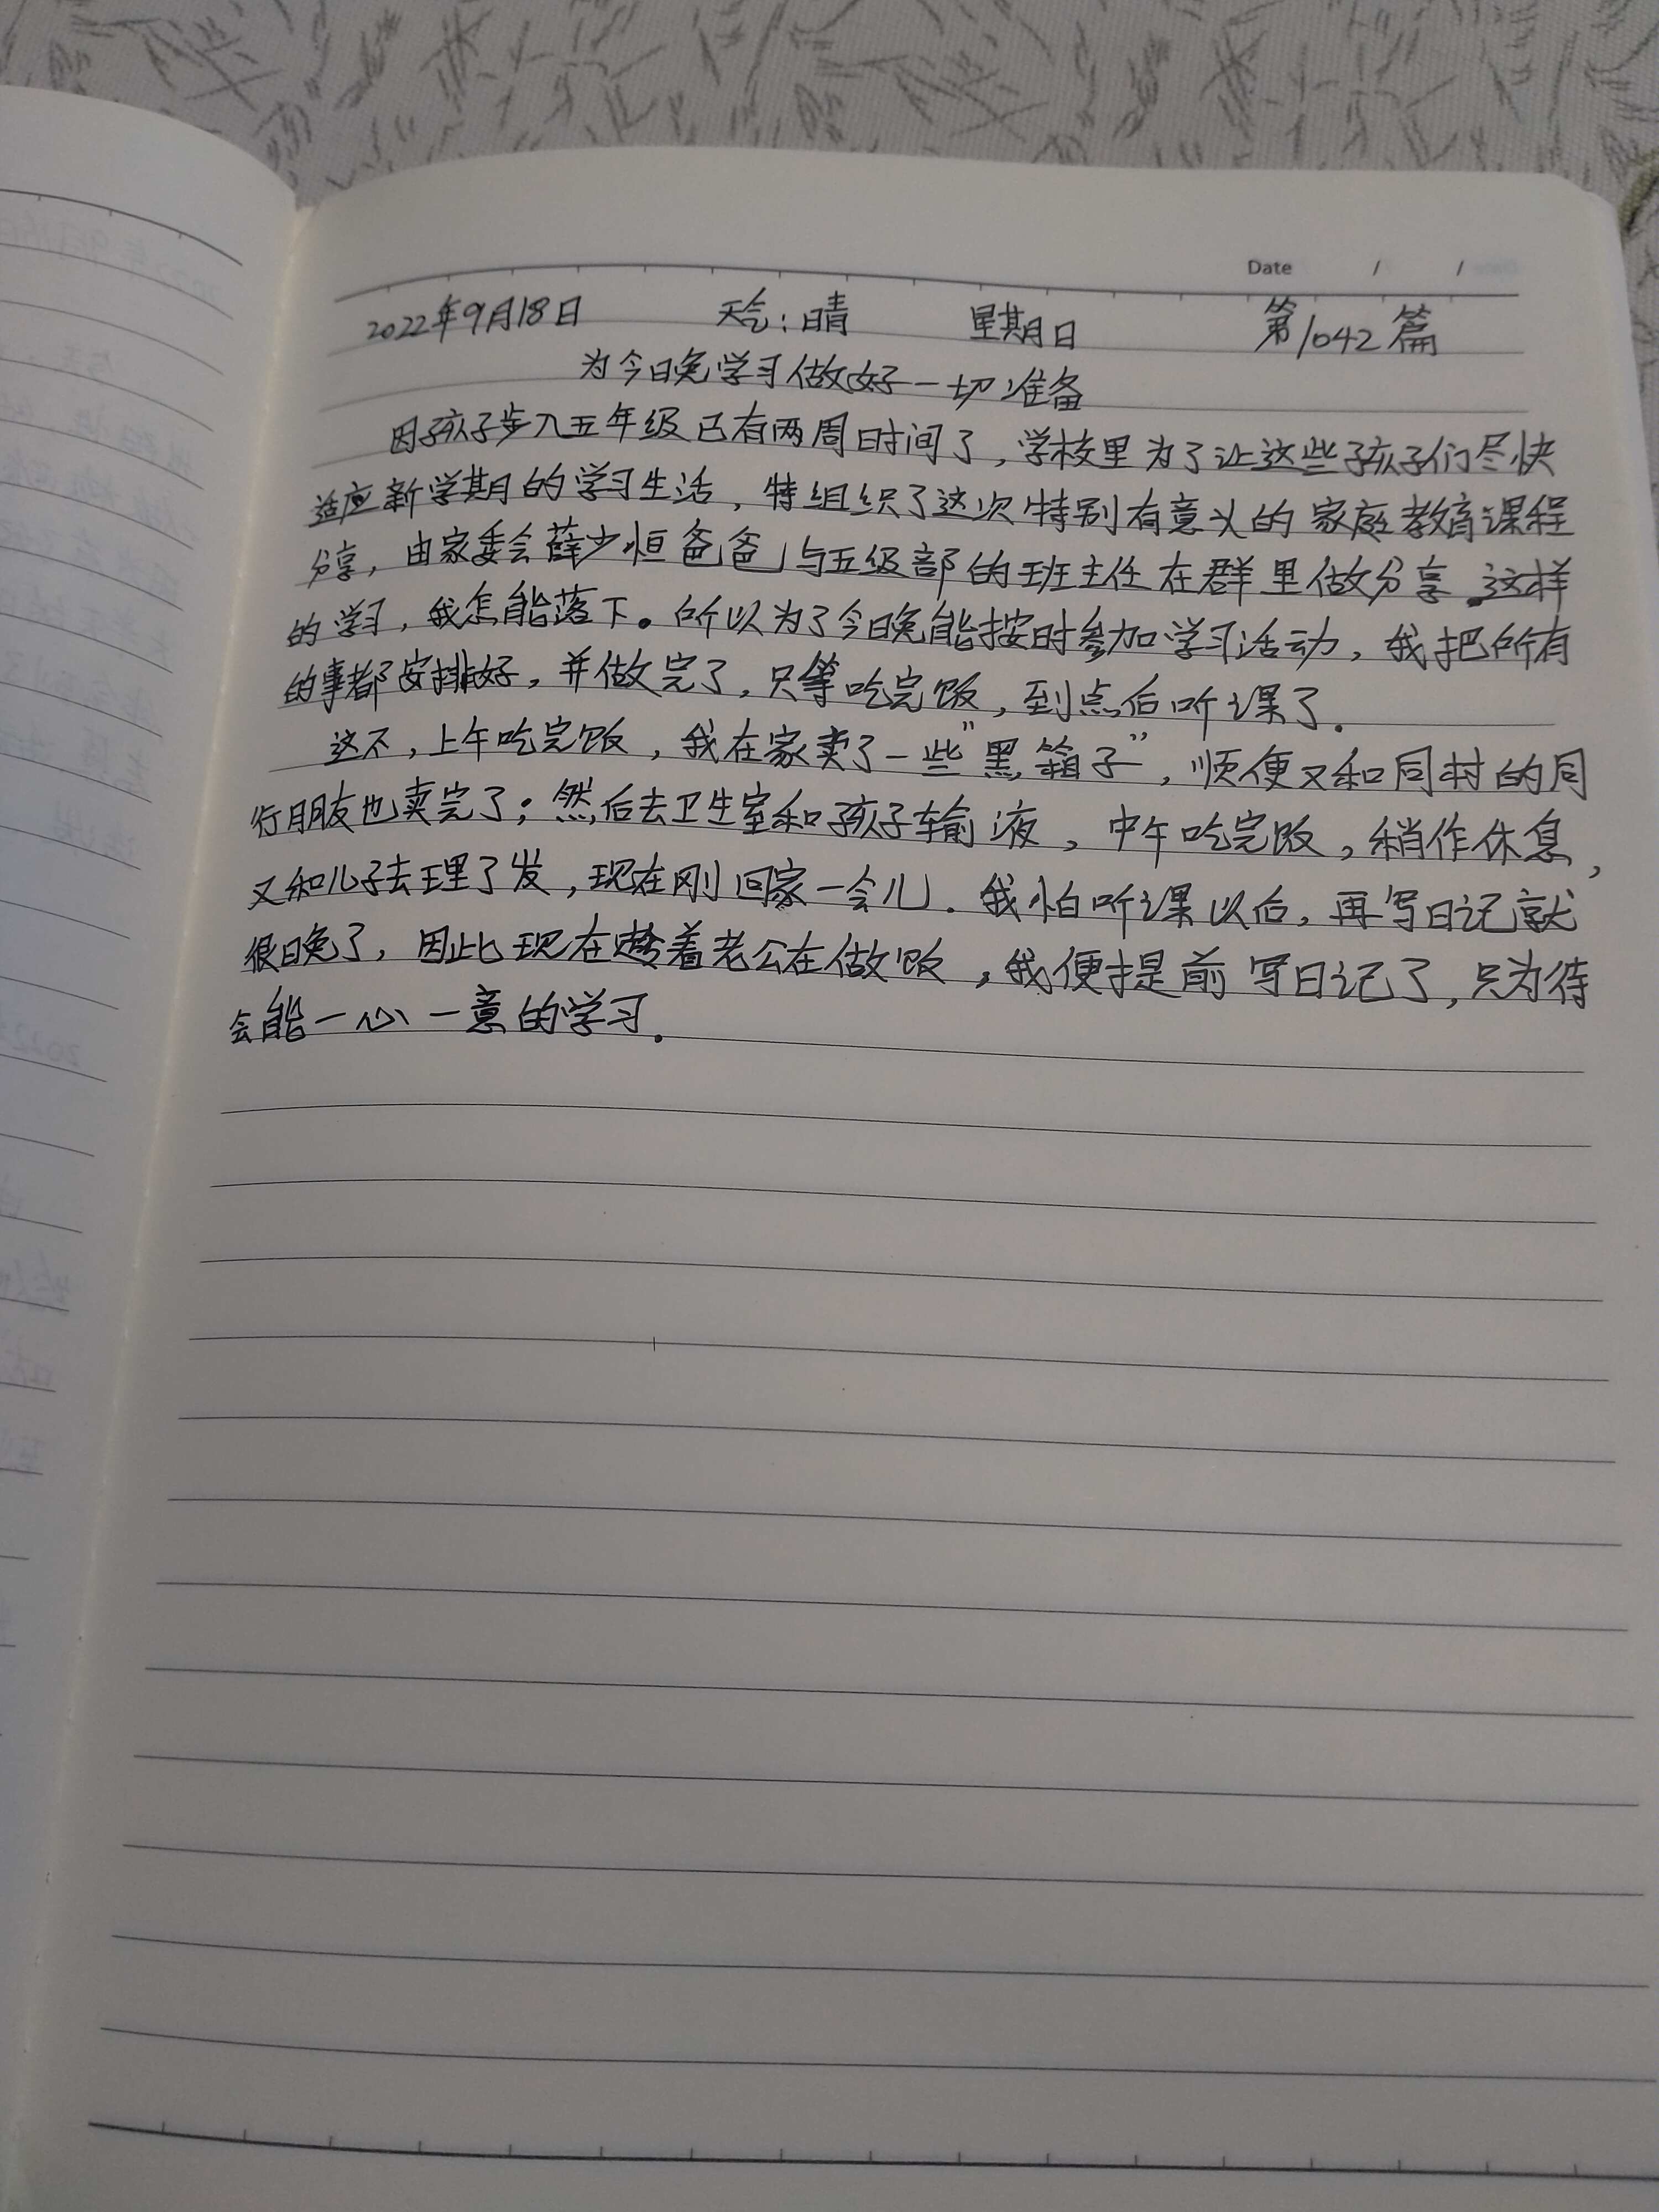 Date / /
2022年9月18日 天气:晴 星期日 第1042篇
为今晚学习做好一切准备
因孩子步入五年级已有两周时间了,学校里为了让这些孩子们尽快
适应新学期的学习生活,特组织了这次特别有意义的家庭教育课程
分享,由家委会薛少恒爸爸与五级部的班主任在群里做分享。这样
的学习,我怎能落下。所以为了今晚能按时参加学习活动,我把所有
的事都安排好,并做完了,只等吃完饭,到点后听课了.
这不,上午吃完饭,我在家卖了一些"黑箱子",顺便又和同村的同
行朋友也卖完了;然后去卫生室和孩子输液,中午吃完饭,稍作休息,
又和儿子去理了发,现在刚回家一会儿.我怕听课以后,再写日记就
很晚了,因此现在趁着老公在做饭,我便提前写日记了,只为待
会能一心一意的学习.